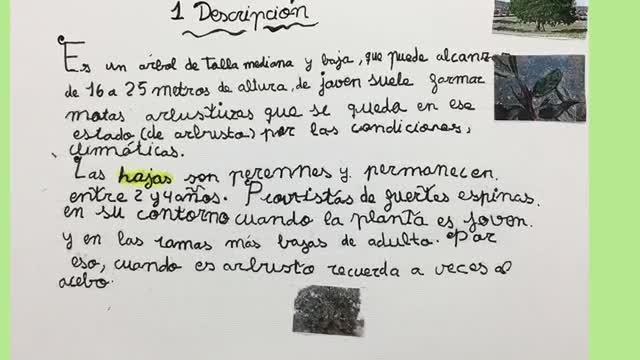 1 Descripción
Es un árbol de talla mediana y baja, que puede alcanzar
de 16 a 25 metros de altura, de joven suele formar
matas arbustivas que se queda en ese
estado (de arbusto) por las condiciones,
climáticas.
Las hojas son perennes y permanecen
entre 2 y 4 años. Provistás de fuertes espinas.
en su contorno cuando la planta es joven.
y en las ramas más bajas de adulto. Por
eso, cuando es arbusto recuerda a veces al
acebo.